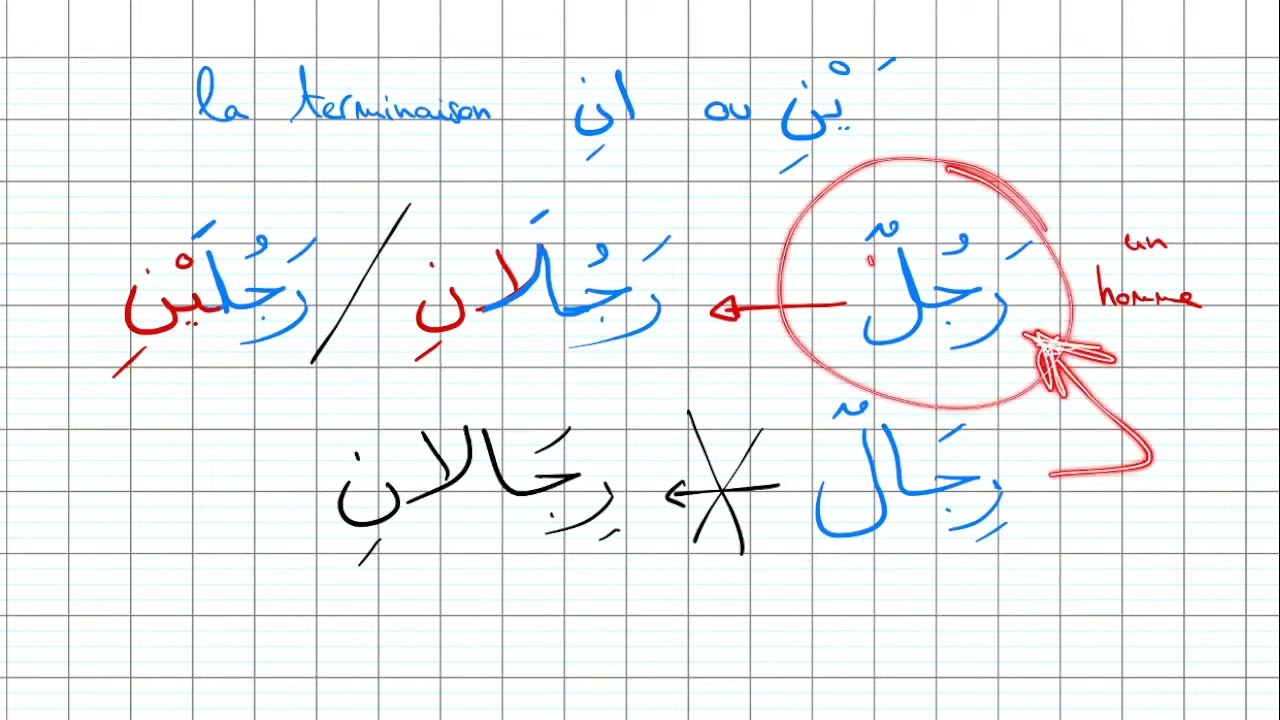 la terminaison انِ ou َيْنِ
رَجُلٌ رَجُلَانِ / رَجُلَيْنِ
un
homme
رِجَالٌ رِجَالانِ